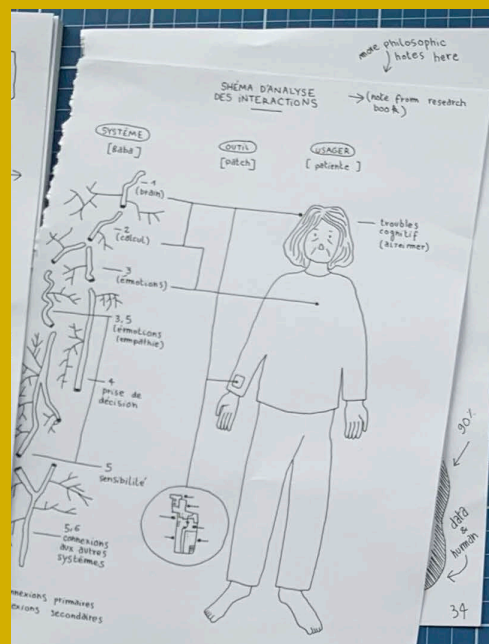 more philosophic
notes here
SHÉMA D'ANALYSE
DES INTERACTIONS
→(note from research
book)
SYSTÈME
[Baba]
OUTIL
[patch]
USAGER
[patiente]
1
(brain)
2
(calcul)
3
(émotions)
3,5
(émotions
empathie)
4
prise de
décision
5
sensibilité
5,6
connexions
aux autres
systèmes
troubles
cognitif
(alzeimer)
nnexions primaires
exions secondaires
90%
data &
human
34